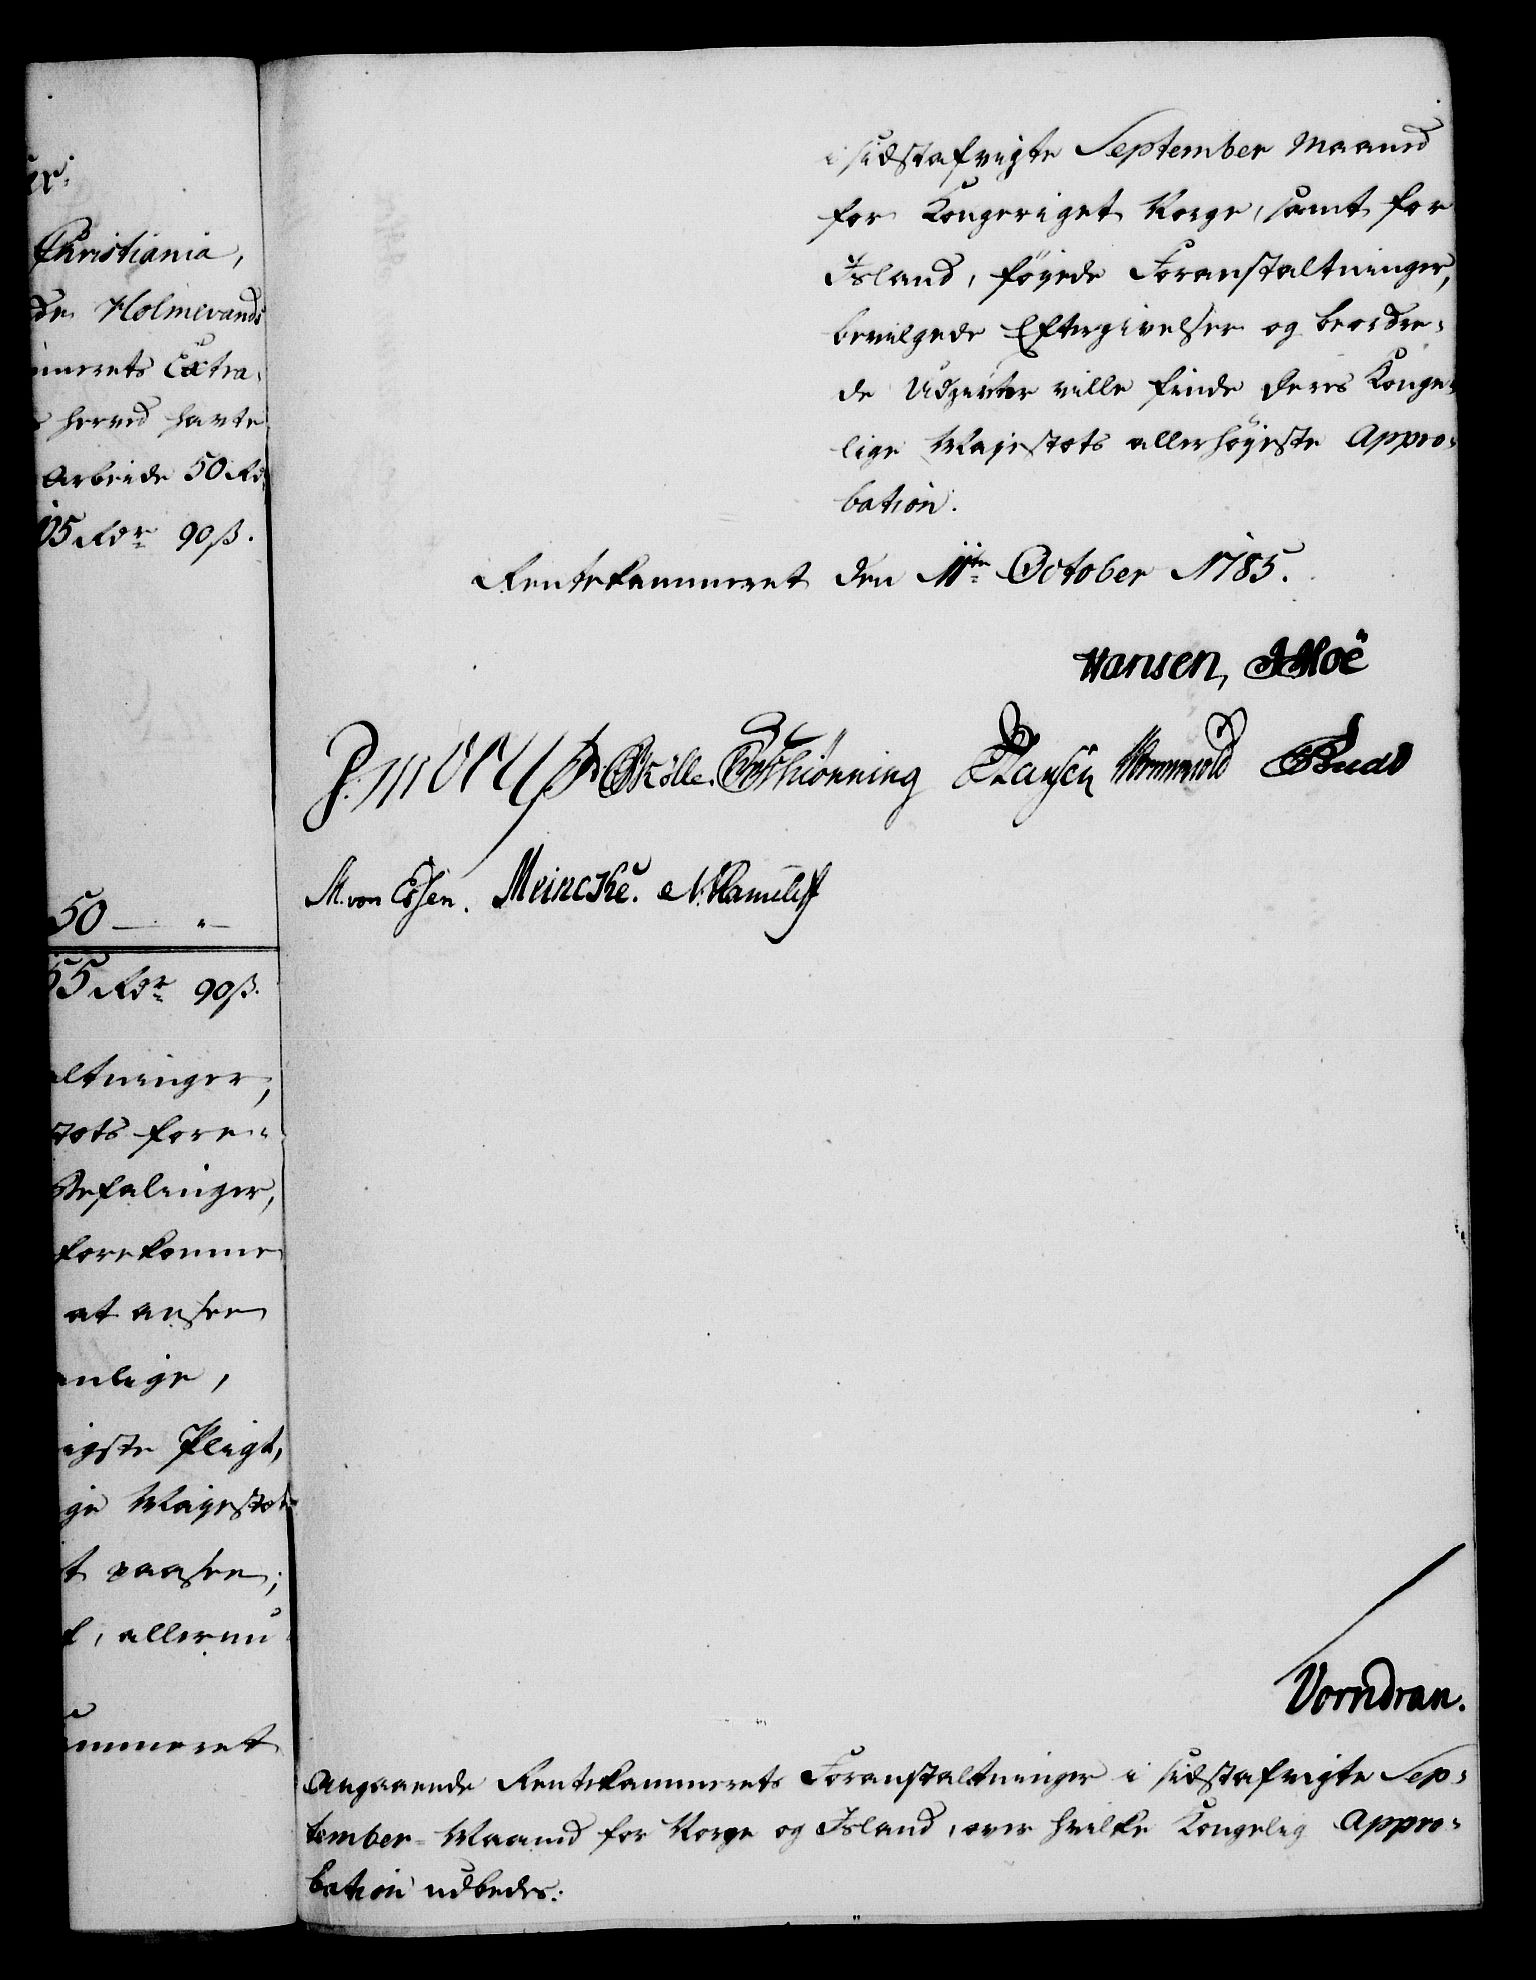 er.
Christiania,
de Holmevands
merets Extra-
herved havte
Arbeide 50 Rd
05 Rdr 90 ß.
50 — " —
55 Rdr 90 ß.
altninger,
stæts fore-
Befalinger,
forekomme
at ansee
anlige,
igste Pligt,
ge Majestæts
t paasee;
allerun
ammeret
i sidstafvigte September Maaned
for Kongeriget Norge, samt for
Island, føyede Foranstaltninger,
bevilgede Eftergivelser og beordre-
de Udgivter ville finde Deres Konge-
lige Majestæts allerhøyeste Appro-
bation.
Rentekammeret den 11te October 1785.
Hansen,
Schiønning Hansen
M. von Essen. Meincke.
Vorndran.
Angaaende Rentekammerets Foranstaltninger i sidstafvigte Sep-
tember-Maaned for Norge og Island, over hvilke Kongelig Appro-
bation udbedes.